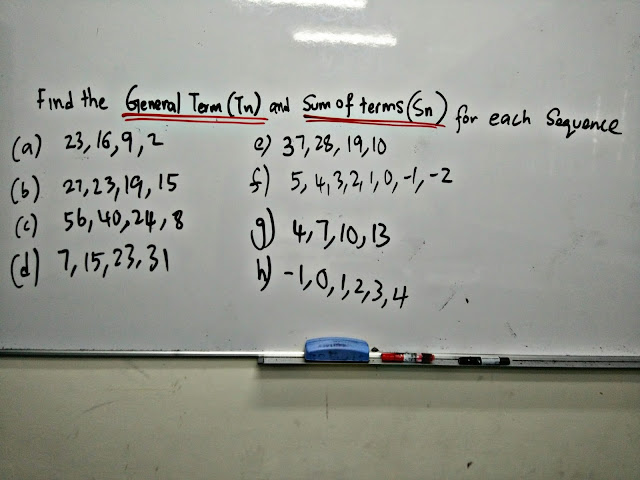 Find the General Term (Tn) and Sum of terms (Sn) for each Sequence
(a) 23, 16, 9, 2
(b) 27, 23, 19, 15
(c) 56, 40, 24, 8
(d) 7, 15, 23, 31
e) 37, 28, 19, 10
f) 5, 4, 3, 2, 1, 0, -1, -2
g) 4, 7, 10, 13
h) -1, 0, 1, 2, 3, 4